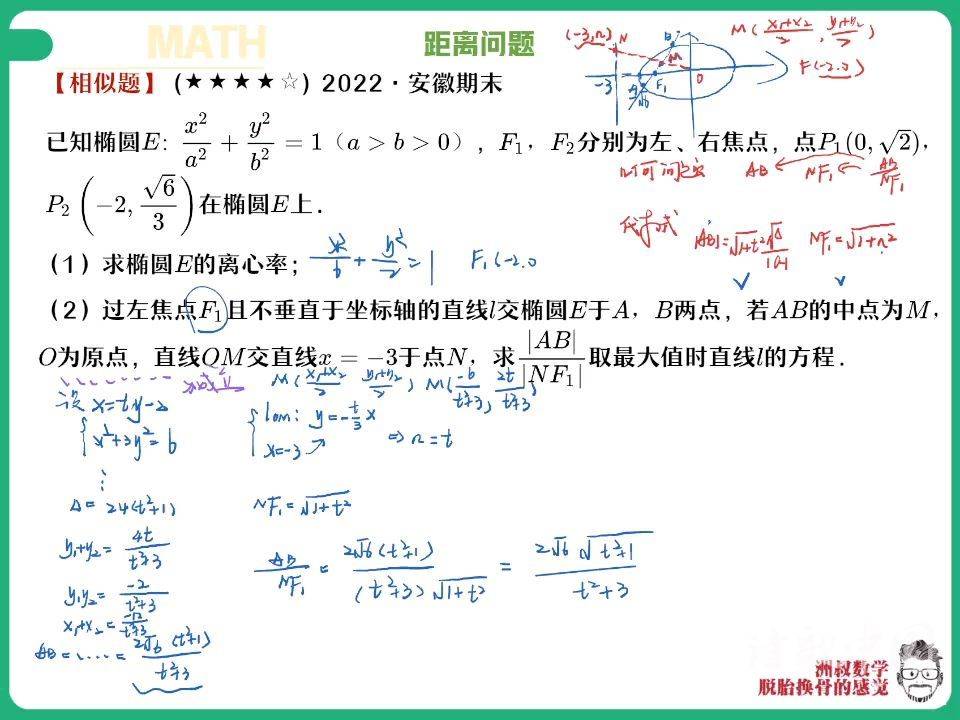 MATH
距离问题
【相似题】(★★★★☆) 2022·安徽期末
(-3,n) N
B
M
M(\frac{x_1+x_2}{2}, \frac{y_1+y_2}{2})
-3 A F_1 O F(-2.0)
已知椭圆E: \frac{x^2}{a^2} + \frac{y^2}{b^2} = 1（a > b > 0），F_1，F_2分别为左、右焦点，点P_1(0, \sqrt{2})，
AB NF_1 \frac{AB}{NF_1}
P_2(-2, \frac{\sqrt{6}}{3})在椭圆E上．
|AB|=\sqrt{1+t^2}\frac{\sqrt{Δ}}{|a|} NF_1=\sqrt{1+n^2}
（1）求椭圆E的离心率； \frac{x^2}{6}+\frac{y^2}{2}=1 F_1(-2.0
（2）过左焦点F_1且不垂直于坐标轴的直线l交椭圆E于A，B两点，若AB的中点为M，
O为原点，直线OM交直线x = −3于点N，求\frac{|AB|}{|NF_1|}取最大值时直线l的方程．
M(\frac{x_1+x_2}{2} \frac{y_1+y_2}{2}) M(\frac{-6}{t^2+3}, \frac{2t}{t^2+3})
设 x=ty-2
{ x^2+3y^2=6
{ lom: y=-\frac{t}{3}x
x=-3 ⇒ n=t
⋮
Δ= 24(t^2+1) NF_1=\sqrt{1+t^2}
y_1+y_2= \frac{4t}{t^2+3}
\frac{AB}{NF_1} = \frac{2\sqrt{6}(t^2+1)}{(t^2+3)\sqrt{1+t^2}} = \frac{2\sqrt{6}\sqrt{t^2+1}}{t^2+3}
y_1y_2= \frac{-2}{t^2+3}
x_1+x_2= \frac{-12}{t^2+3}
AB=......= \frac{2\sqrt{6}(t^2+1)}{t^2+3}
洲叔数学
脱胎换骨的感觉